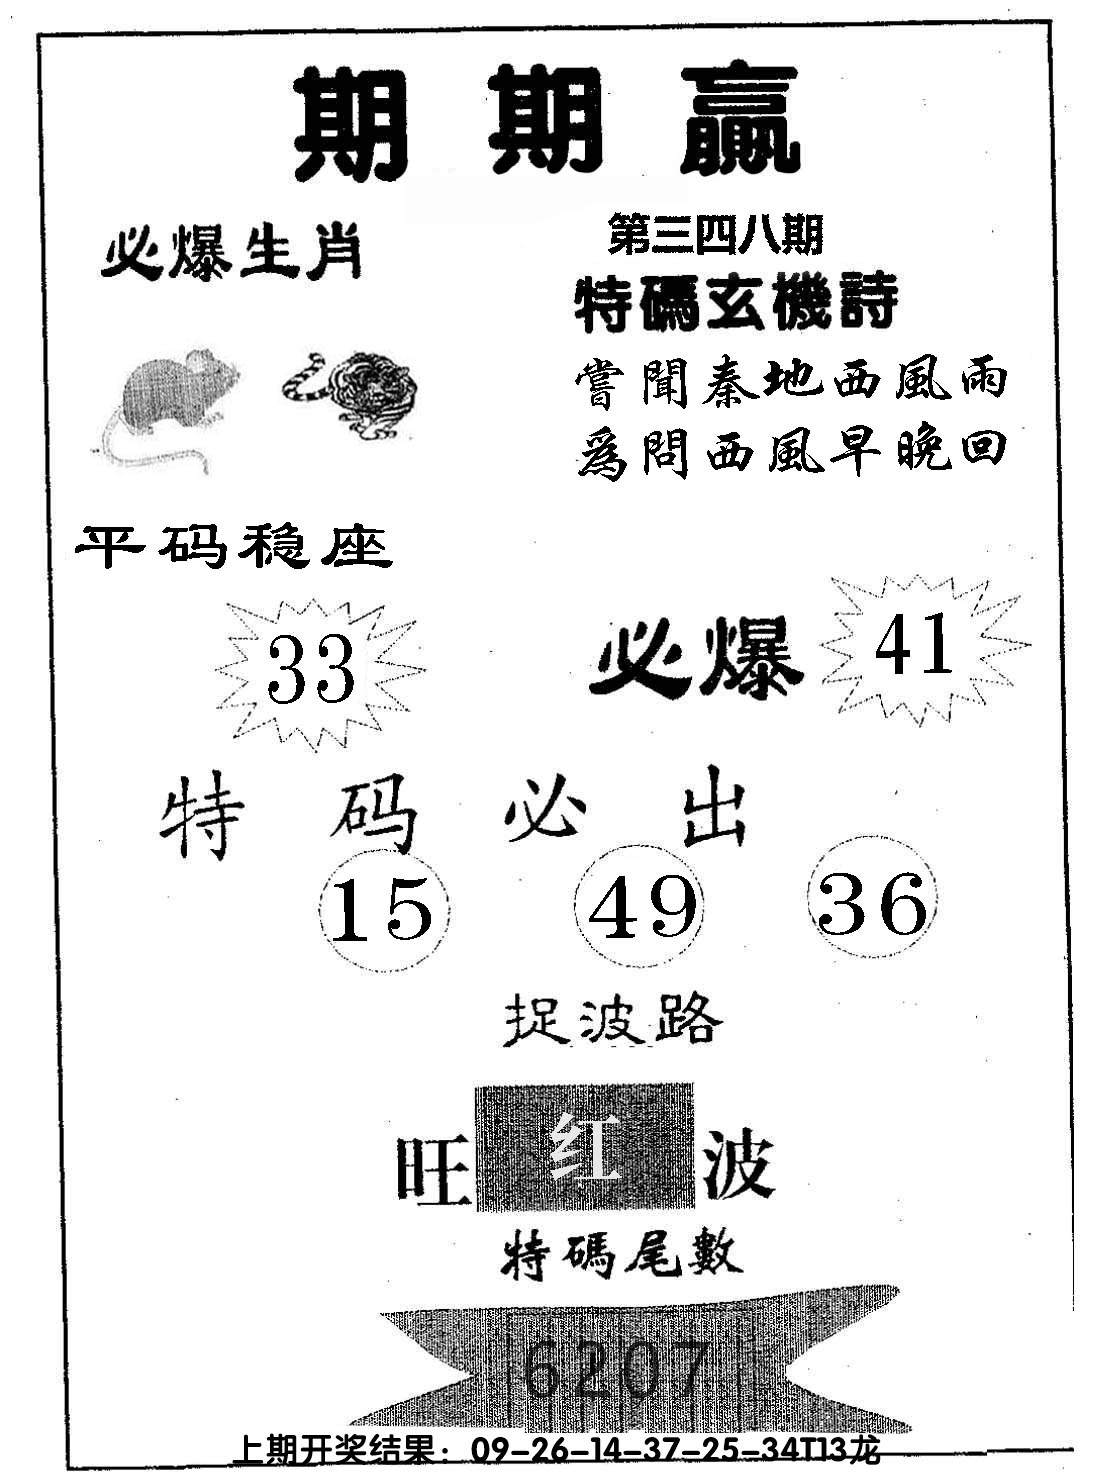 期期赢
必爆生肖
第三四八期
特碼玄機詩
嘗聞秦地西風雨
爲問西風早晚回
平码稳座
33
必爆
41
特码必出
15 49 36
捉波路
旺红波
特碼尾數
6207
上期开奖结果：09-26-14-37-25-34T13龙